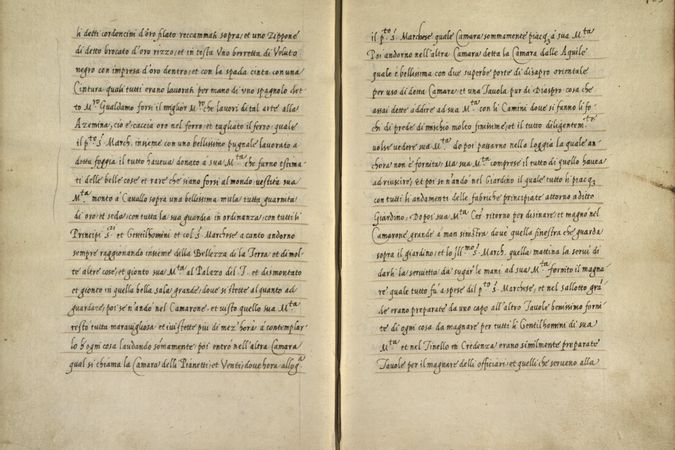 li detti cordoncini d'oro filato reccammati sopra, et uno Zippone
di detto brocato d'oro rizzo, et in testa vno berretta di Veluto
negro con impresa d'oro dentro, et con la spada cinta con una
Cintura, quali tutti erano lauorati per mano di vno spagnolo det=
to M.ro Gualdamo forsi il miglior M.ro che lauori di tal arte alla
Azamina, cio è caccia oro nel ferro, et tagliato il ferro, quale
il p.to S. March. insieme con uno bellissimo pugnale lauorato a
detta foggia il tutto haueua donato à sua M.ta che furno estima
ti delle belle cose et rare che siano forsi al mondo uestita sua
M.ta montò à Cauallo sopra una bellissima mula tutta guarnita
di oro et seda, con tutta la sua guardia in ordinanza, con tutti li
Principi S.ri et Gentilhomini et col S. Marchese a canto andorno
sempre raggionando insieme della Bellezza di la Terra, et di mol=
te altre cose, et gionto sua M.ta al Palazo del T. et dismontato
et gionto in quella bella sala grande, doue si stette alquanto ad
guardare, poi se n'andò nel Camarone, et visto quello sua M.ta
restò tutta marauigliosa, et iui stette piu di mez' hora à contemplar
lo, b ogni cosa laudando sommamente, poi entrò nell'altra Camara
qual si chiama la Camara delli Pianetti, et Venti, doue hora allog.a
il p.to S. Marchese quale Camara sommamente piacq, à sua M.ta
Poi andorno nell'altra Camara detta la Camara dalle Aquile
quale è bellissima con due superbe porte di disapro orientale
per uso di detta Camara et una Tauola pur di Diaspro cosa che
assai dette addire ad sua M.ta con li Camini doue si fanno li fo=
chi di prede di mischio molto finissime, et il tutto diligentem.te
volse vedere sua M.ta do poi passarno nella loggia la quale an
chora non è fornita, Ma sua M.ta comprese il tutto di quello haueua
ad riuscire, et poi se n'andò nel Giardino il quale tutto li piacq,
con tutti li andamenti delle fabriche principiate attorno a ditto
Giardino. Do poi sua M.ta Ces. ritornò per disinare, et magnò nel
Camarone grande à man sinistra, doue è quella finestra che guarda
sopra il giardino, et lo Ill.mo S. March. quella mattina la serui di
darli la seruietta da sugar le mani, ad sua M.ta fornito il magna
re quale tutto fu à spese dil p.to S. Marchese, et nel sallotto grā
de erano preparate da uno capo all'altro Tauole benissimo forni
te di ogni cosa da magnare per tutti li Gentilhomini di sua
M.ta et nel Tinello in Credenza erano similmente preparate
Tauole per il magnare delli officiari, et quelli che seruano alla